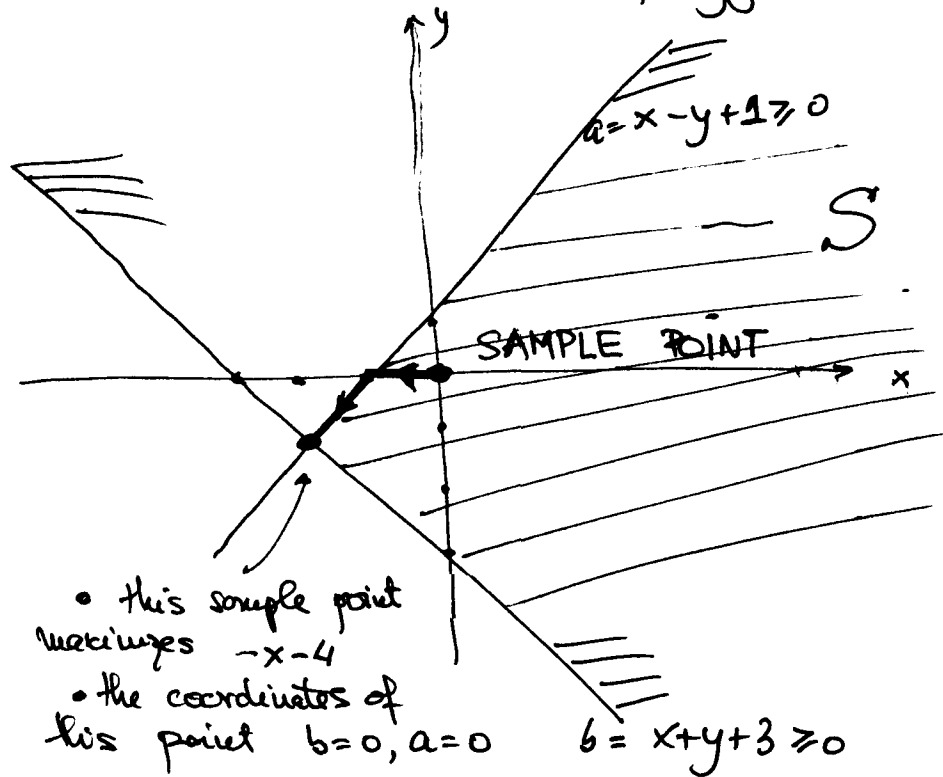 y
a = x - y + 1 ⩾ 0
S
SAMPLE POINT
x
• this sample point
maximizes -x-4
• the coordinates of
this point b=0, a=0
b = x+y+3 ⩾0